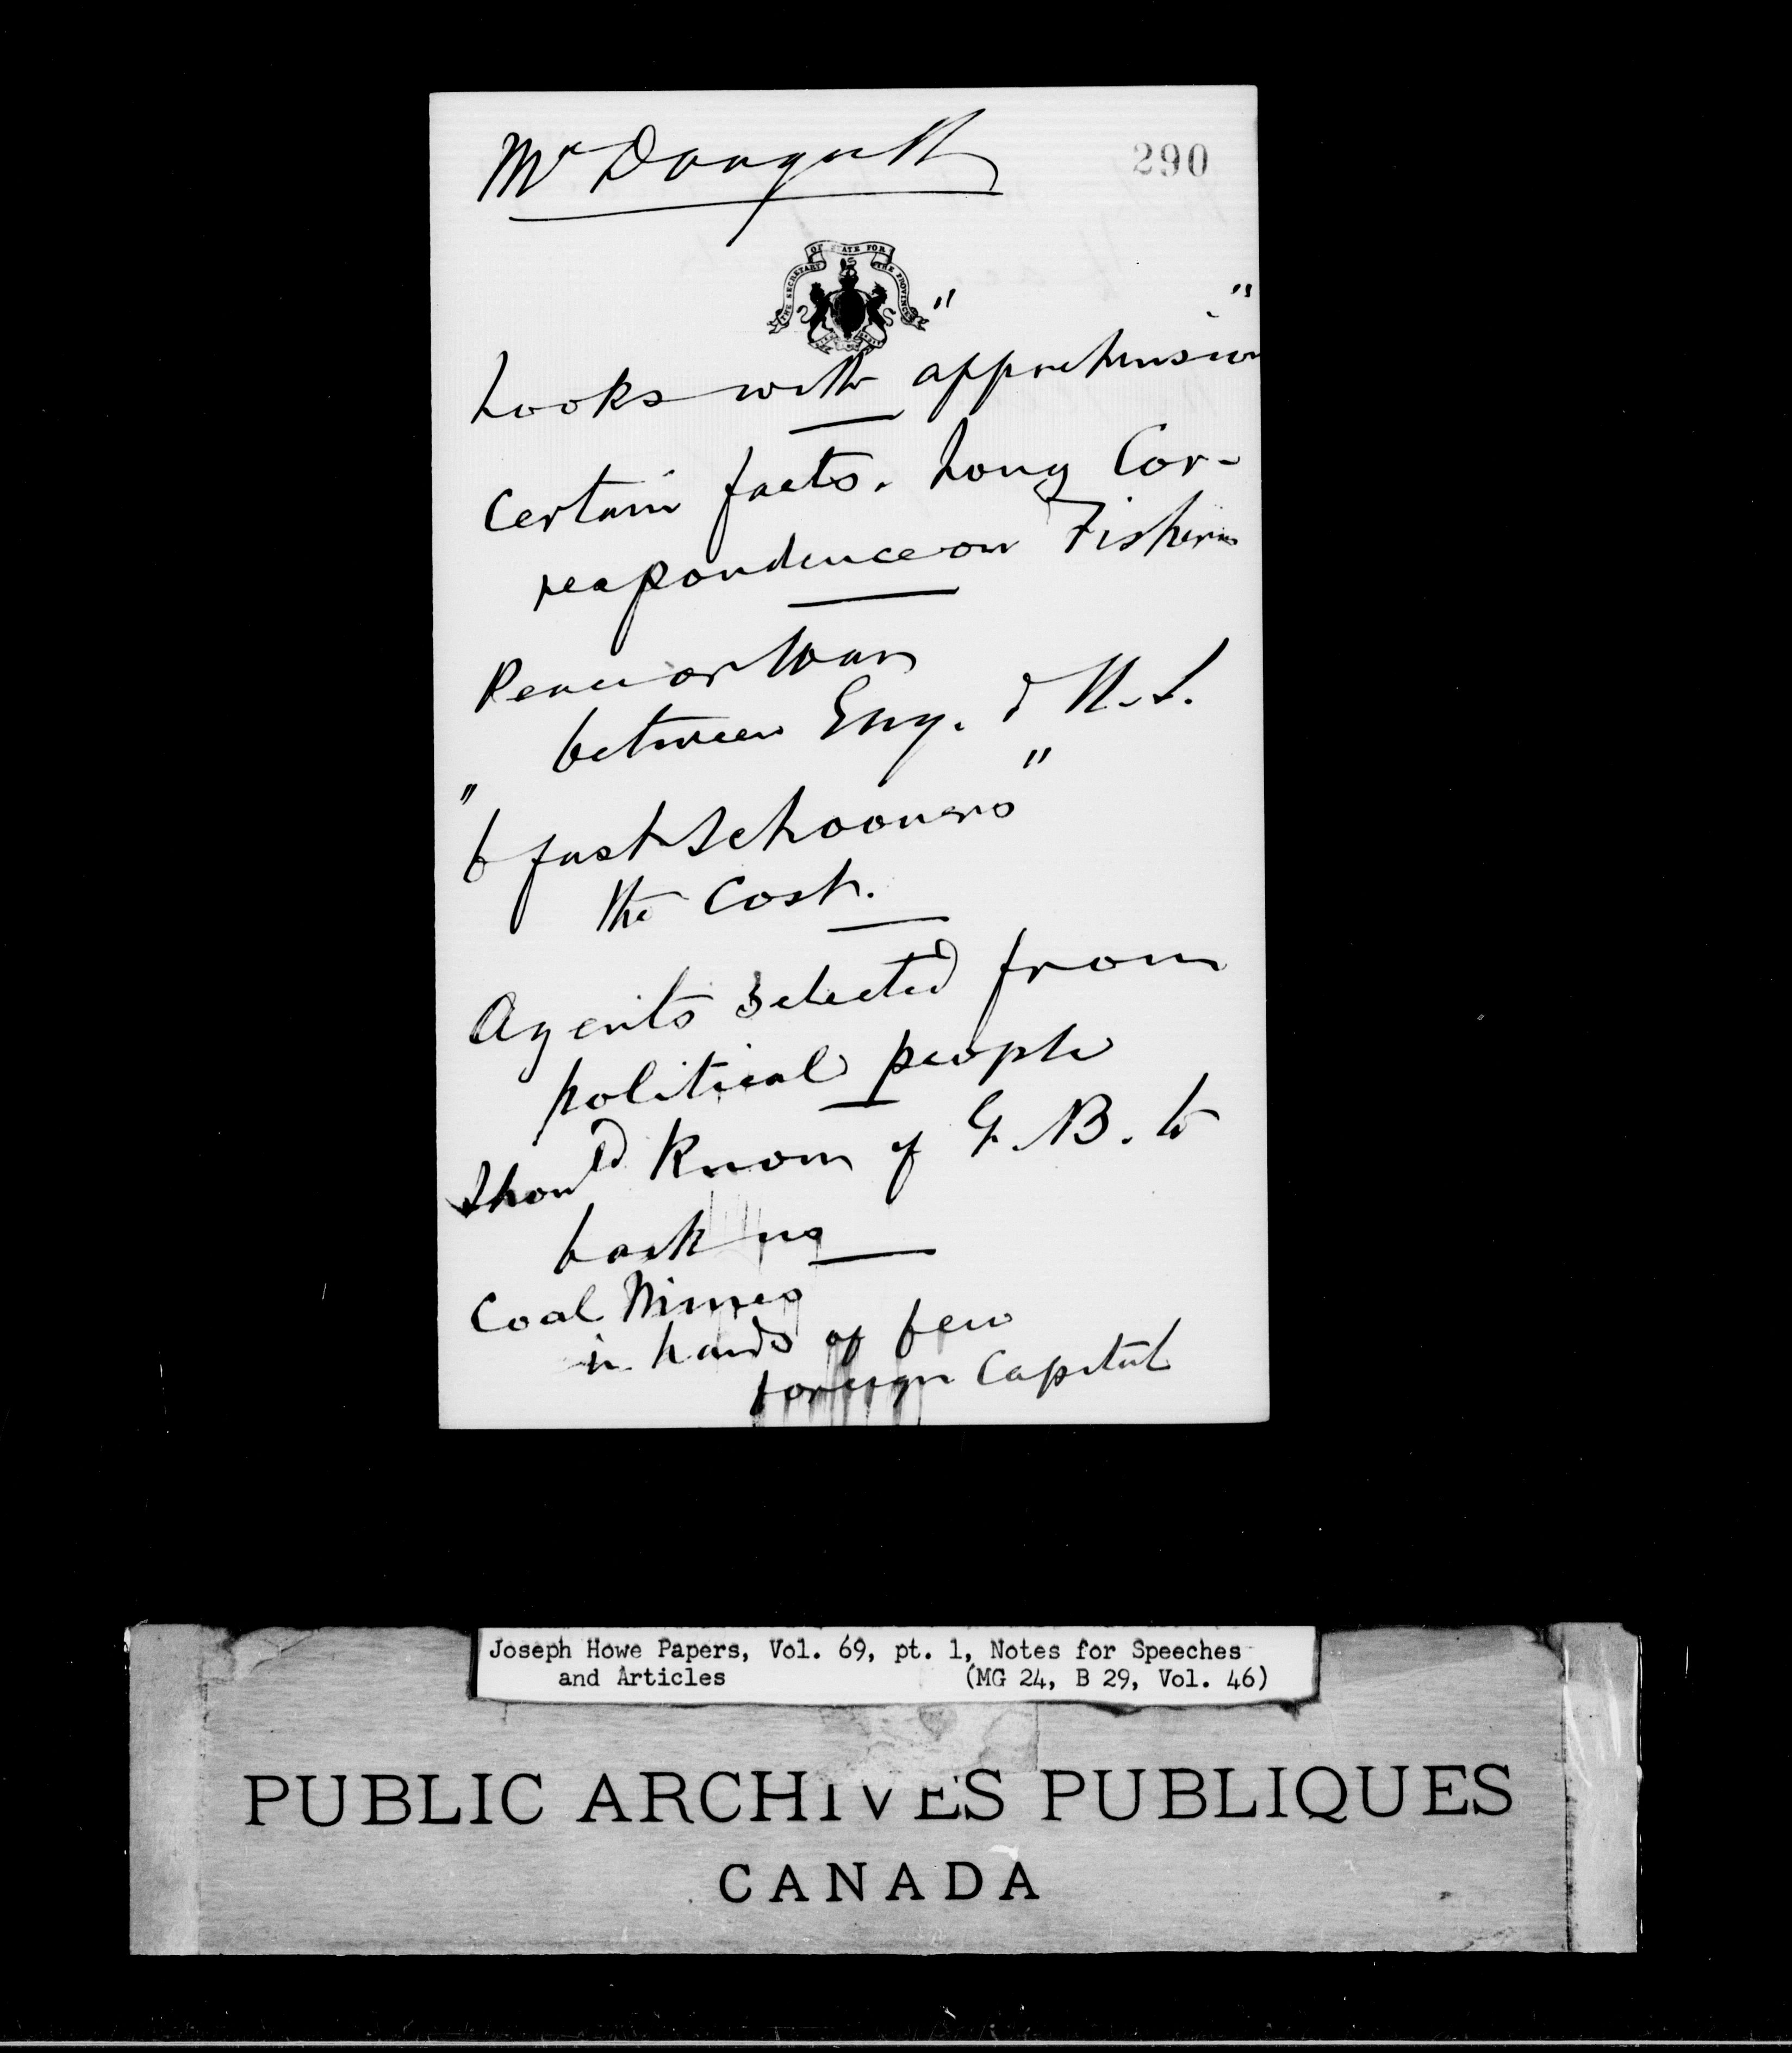 McDougall
290
THE SECRETARY OF STATE FOR THE PROVINCES
Looks with "apprehension"
Certain facts. Long Cor-
respondence on Fisheries
Peace or War
between Eng. & U.S.
"6 fast Schooners"
the Cost.
Agents selected from
political people
Should know if G.B. to
back us
Coal Mines
in hands of few
foreign Capital
Joseph Howe Papers, Vol. 69, pt. 1, Notes for Speeches
and Articles (MG 24, B 29, Vol. 46)
PUBLIC ARCHIVES PUBLIQUES
CANADA